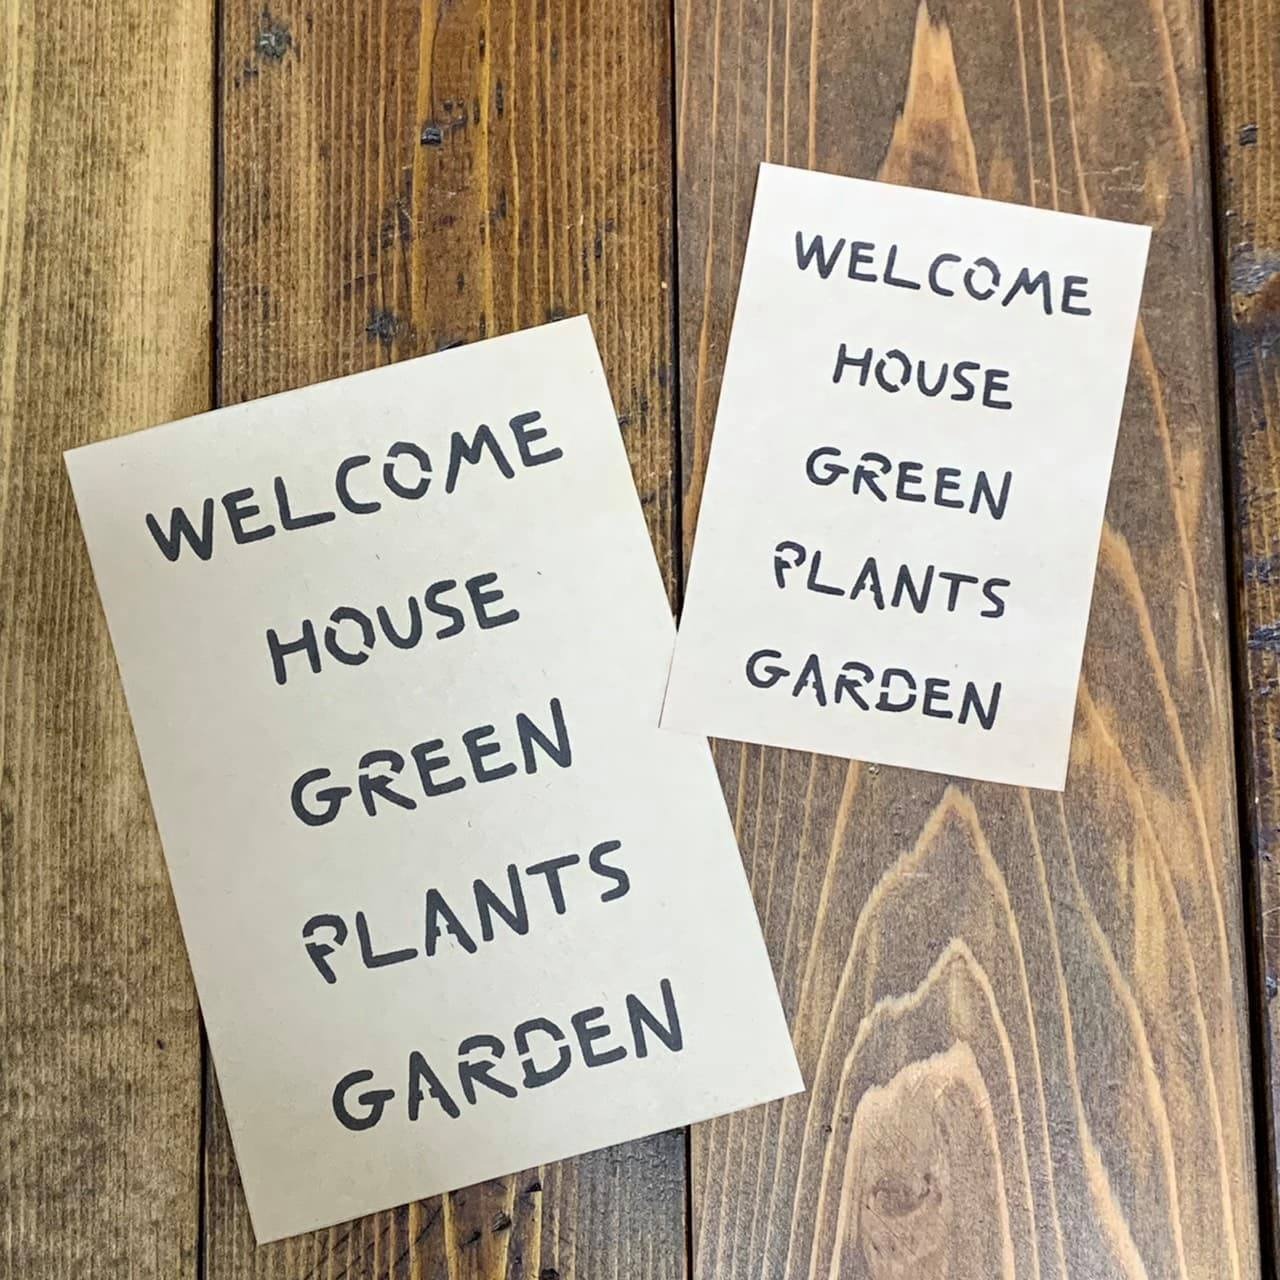 WELCOME
HOUSE
GREEN
PLANTS
GARDEN
WELCOME
HOUSE
GREEN
PLANTS
GARDEN